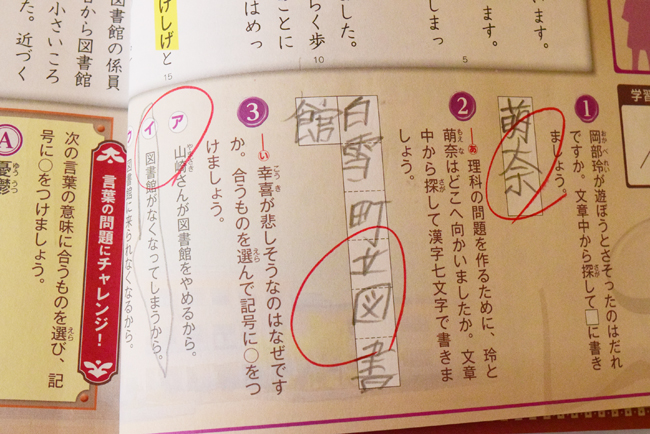 います。
ます。
5
ました。
らく歩
10
ことに
はめっ
けしげと
15
図書館の係員
名から図書館
小さいころ
た。近づく
学習
1
岡部玲が遊ぼうとさそったのはだれ
ですか。文章中から探して□に書き
ましょう。
萌奈
2
あ 理科の問題を作るために、玲と
萌奈はどこへ向かいましたか。文章
中から探して漢字七文字で書きま
しょう。
白雪町立図書
館
3
い 幸喜が悲しそうなのはなぜです
か。合うものを選んで記号に○をつ
けましょう。
ア 山崎さんが図書館をやめるから。
イ 図書館がなくなってしまうから。
ウ 図書館に来られなくなるから。
言葉の問題にチャレンジ！
次の言葉の意味に合うものを選び、記
号に○をつけましょう。
A 憂鬱